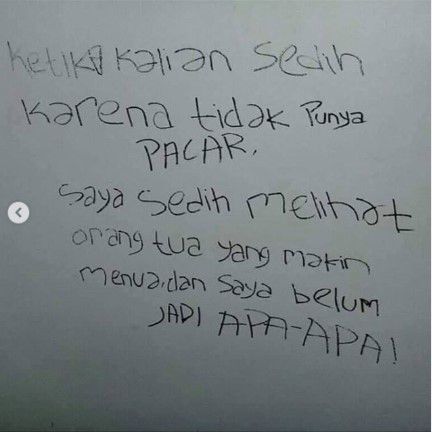 Ketika Kalian Sedih
Karena tidak Punya
PACAR.
Saya Sedih Melihat
orang tua yang makin
Menua, dan Saya belum
JADI APA-APA!